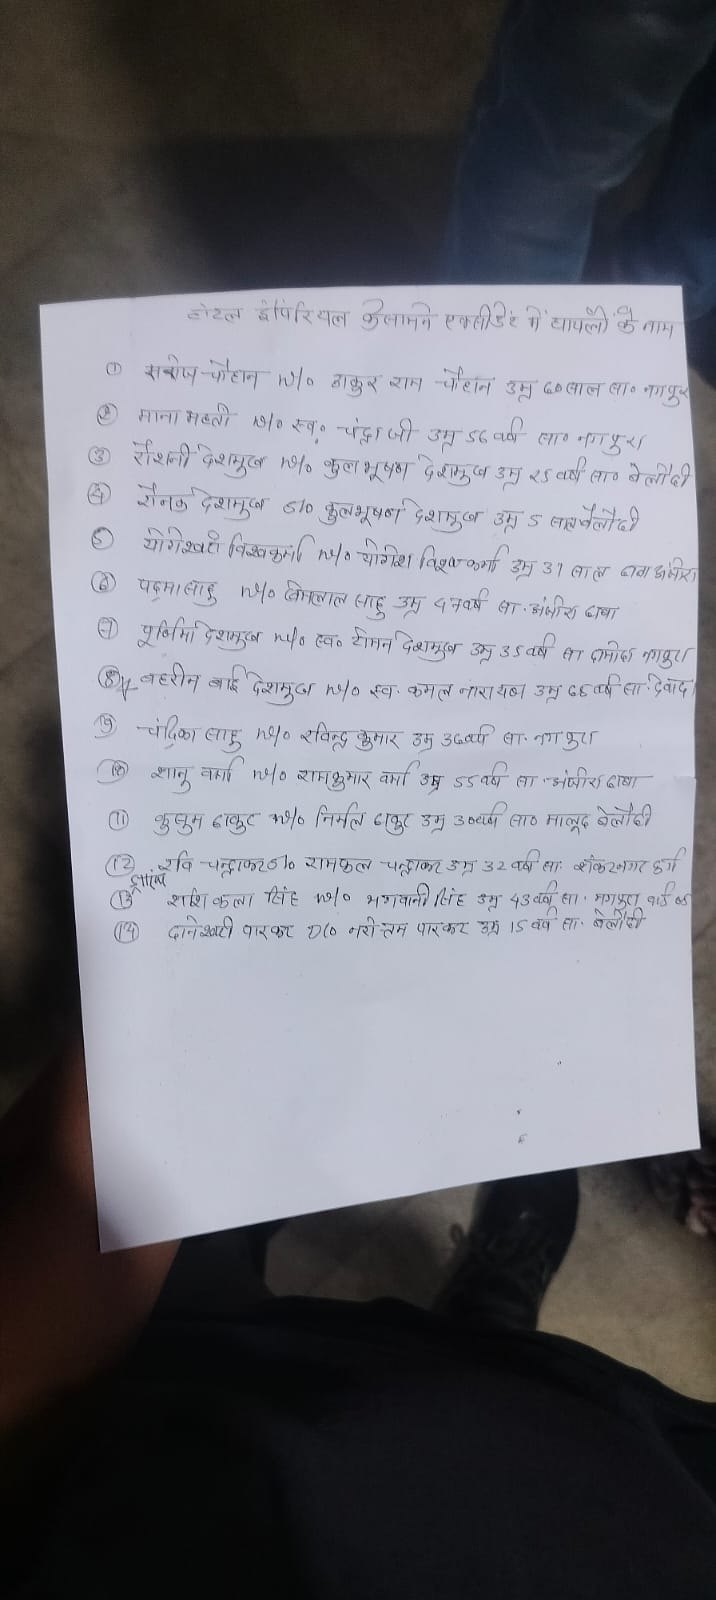 होटल इंपिरियल के सामने एक्सीडेंट में घायलों के नाम
① सन्तोष चौहान w/o ठाकुर राम चौहान उम्र 60 साल सा० नगपुरा
② माना महती w/o स्व० चंद्रा जी उम्र 56 वर्ष सा० नगपुरा
③ रोशनी देशमुख w/o कुलभूषण देशमुख उम्र 25 वर्ष सा० बेलौदी
④ रौनक देशमुख S/o कुलभूषण देशमुख उम्र 5 साल बेलौदी
⑤ योगेश्वरी विश्वकर्मा w/o योगेश विश्वकर्मा उम्र 37 साल ढाबा अंजोरा
⑥ पद्मा साहु w/o साहु उम्र 47 वर्ष सा. अंजोरा ढाबा
⑦ पूर्णिमा देशमुख w/o स्व० रोमन देशमुख उम्र 35 वर्ष सा नगपुरा
⑧ बहरीन बाई देशमुख w/o स्व. कमल नारायण उम्र 65 वर्ष सा.
⑨ चंद्रिका साहु w/o रविन्द्र कुमार उम्र 36 वर्ष सा. नगपुरा
⑩ शानु वर्मा w/o रामकुमार वर्मा उम्र 55 वर्ष सा. अंजोरा ढाबा
⑪ कुसुम ठाकुर w/o निर्मल ठाकुर उम्र 30 वर्ष सा० मालूद बेलौदी
⑫ रवि चन्द्राकर S/o रामफल चन्द्राकर उम्र 32 वर्ष सा. शंकर नगर दुर्ग
⑬ शशि कला सिंह w/o भगवानी सिंह उम्र 43 वर्ष सा. वार्ड
⑭ दानेश्वरी पारकर D/o नरोत्तम पारकर उम्र 15 वर्ष सा. बेलौदी